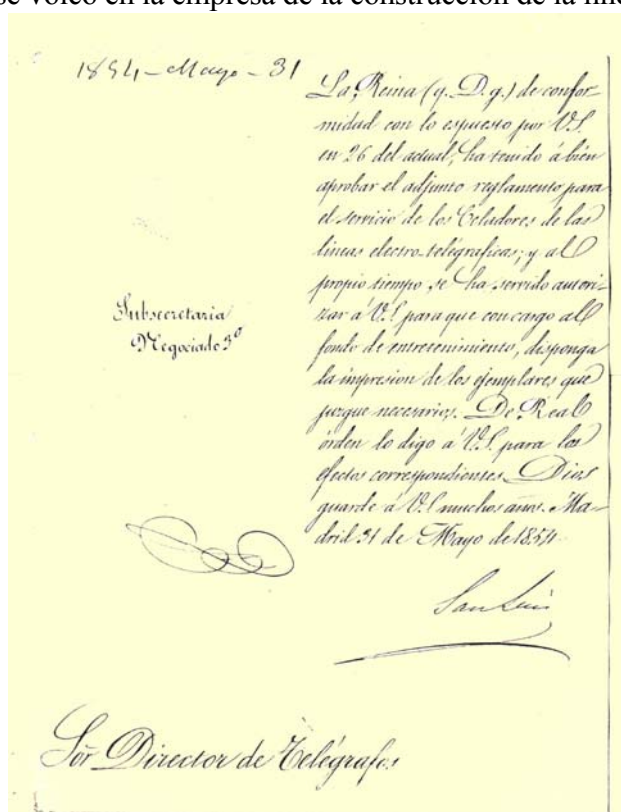 se volcó en la empresa de la construcción de la líne
1854 - Mayo - 31
La Reina (q. D. g.) de confor-
midad con lo espuesto por V.S.
en 26 del actual, ha tenido á bien
aprobar el adjunto reglamento para
el servicio de los Celadores de las
lineas electro-telégraficas; y al
propio tiempo, se ha servido autori-
zar á V.S. para que con cargo al
fondo de entretenimiento, disponga
la impresion de los ejemplares que
juzgue necesarios. De Real
órden lo digo á V.S. para los
efectos correspondientes. Dios
guarde á V.S. muchos años. Ma-
drid 31 de Mayo de 1854.
Subsecretaria
Negociado 3º
San Luis
Sor Director de Telégrafos